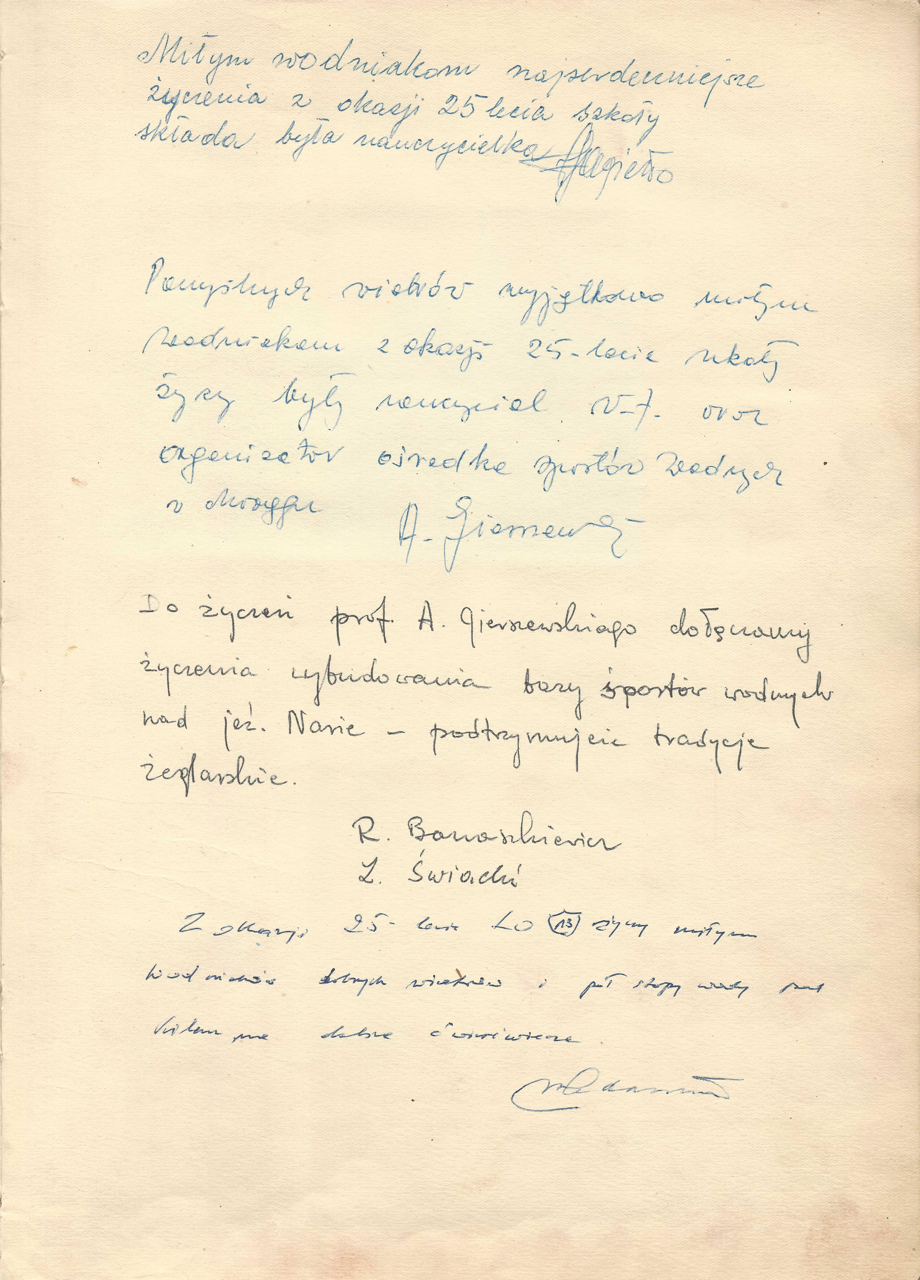 Miłym wodniakom najserdeczniejsze
życzenia z okazji 25 lecia szkoły
składa była nauczycielka
Pomyślnych wiatrów wyjątkowo miłym
wodniakom z okazji 25-lecia szkoły
życzy były nauczyciel oraz
organizator ośrodka sportów wodnych
w Morągu
A.
Do życzeń prof. A. Gierszewskiego dołączamy
życzenia wybudowania bazy sportów wodnych
nad jez. Narie – podtrzymujcie tradycje
żeglarskie.
R. Banaszkiewicz
Z okazji 25-lecia LO 13 życzy miłym
dobrych wiatrów i pół stopy wody pod
kilem